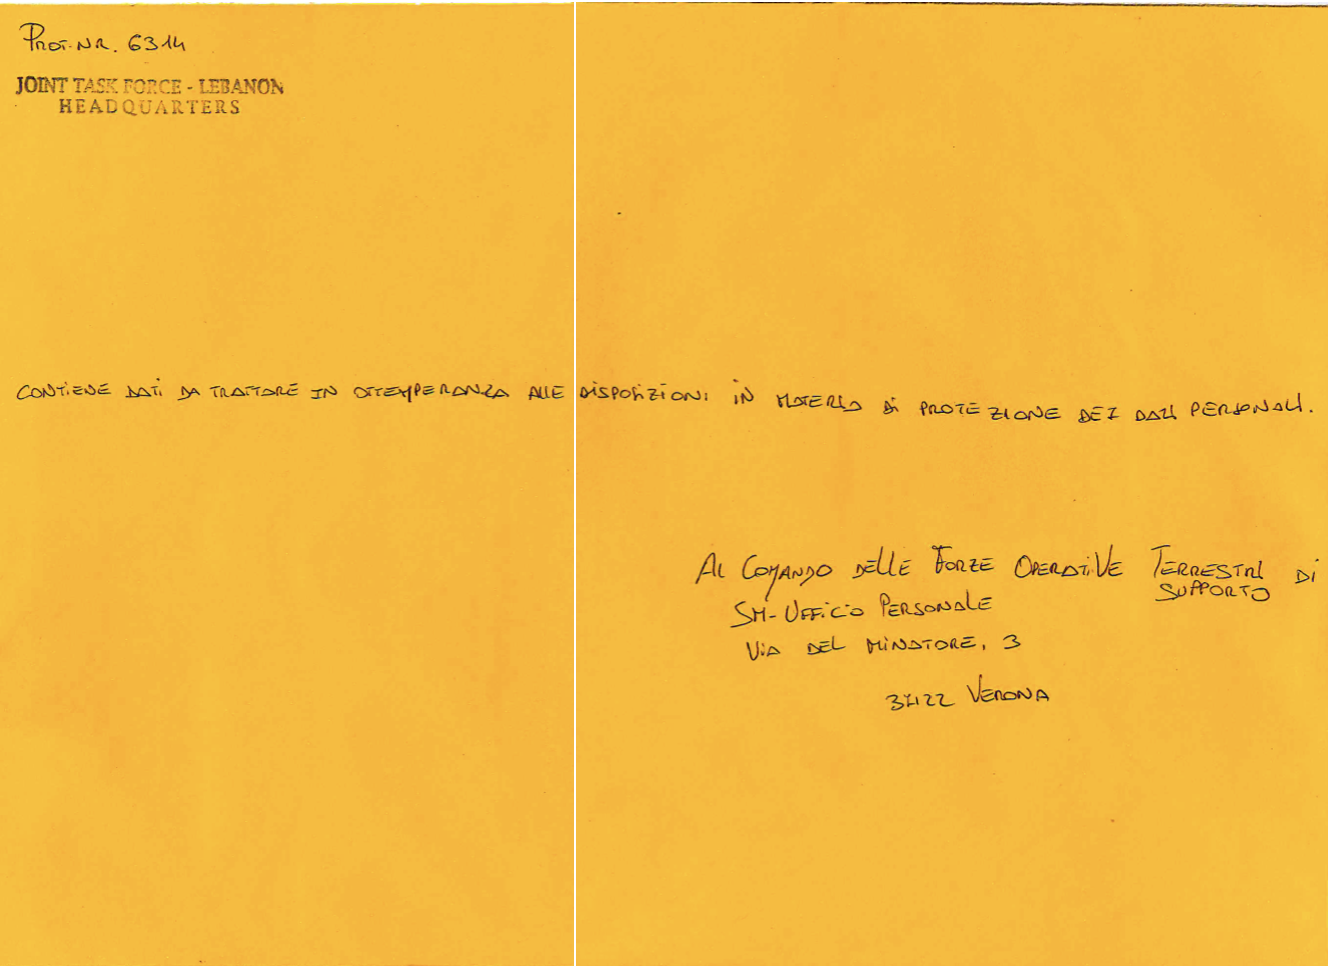 Prot. NR. 6314
JOINT TASK FORCE - LEBANON
HEADQUARTERS
CONTIENE DATI DA TRATTARE IN OTTEMPERANZA ALLE DISPOSIZIONI IN MATERIA DI PROTEZIONE DEI DATI PERSONALI.
AL COMANDO DELLE FORZE OPERATIVE TERRESTRI DI
SUPPORTO
SM-UFFICIO PERSONALE
VIA DEL MINATORE, 3
37122 VERONA